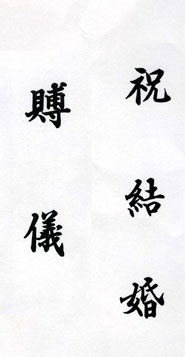 祝結婚
賻儀